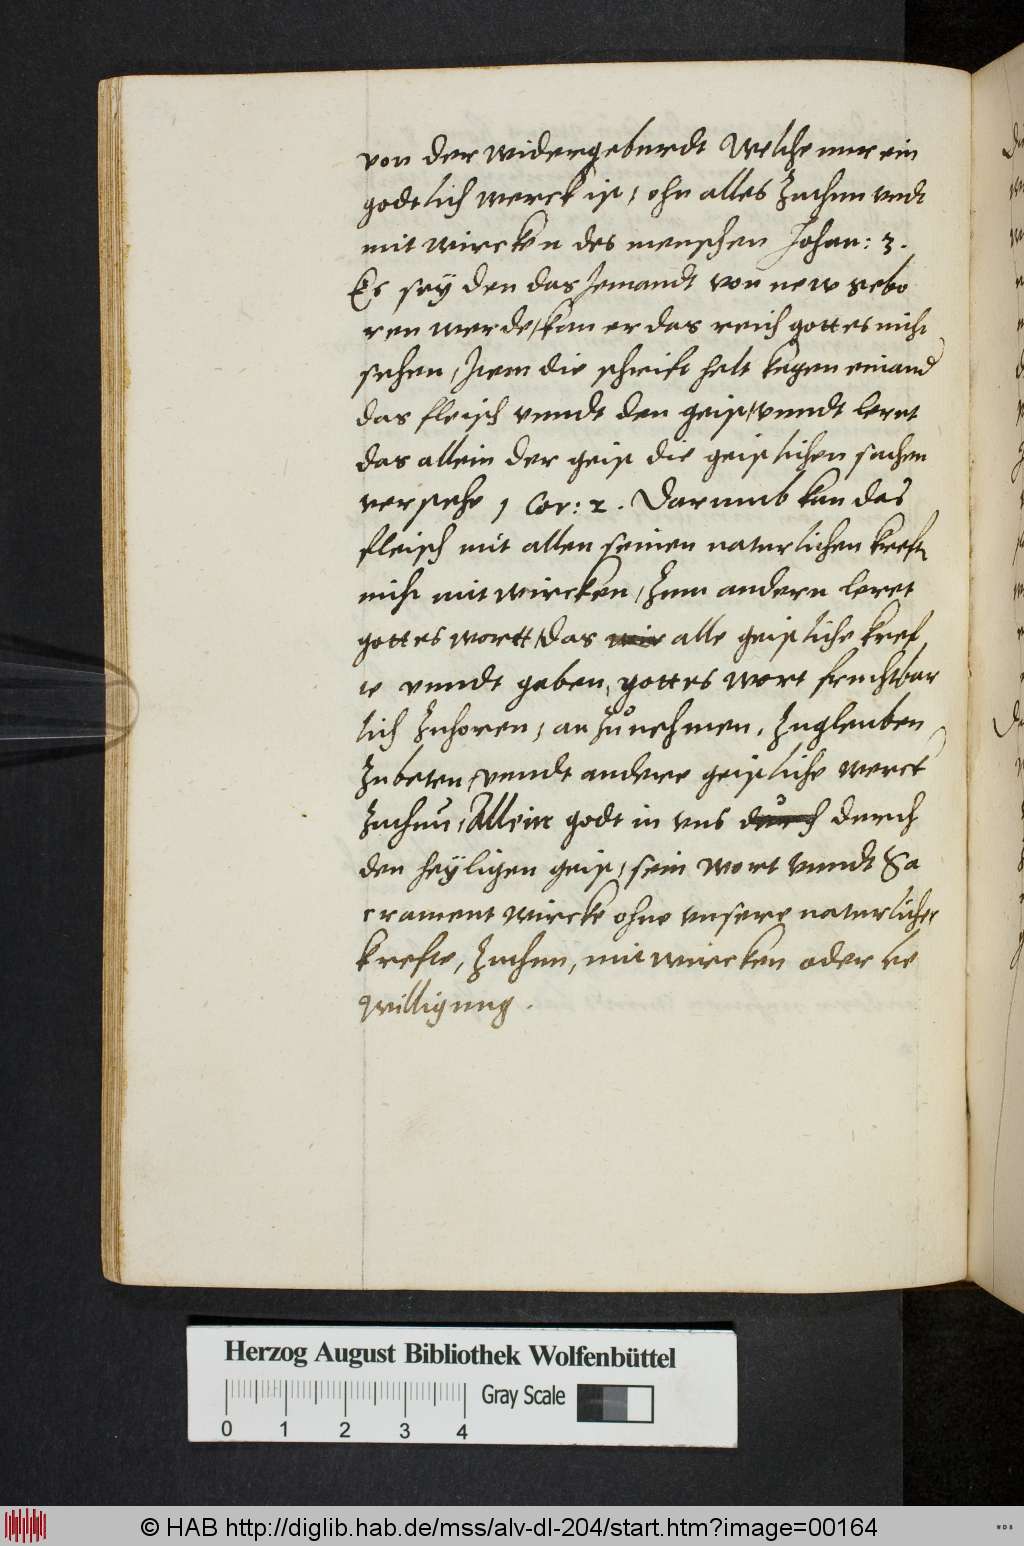 von der widergeburdt Welche nur ein
godtlich werck ist, ohn alles Zuthun undt
mit wircken des menschen Johan: 3.
Es sey den das Jemandt von new gebo
ren werde, kan er das reich gottes nicht
sehen, Item die schrifft helt kegen einand
das fleisch unndt den geist, unndt leret
das allein der geist die geistlichen sachen
verstehe 1 Cor: 2. Darumb kan das
fleisch mit allen seinen naturlichen krefft
nicht mit wircken, Zum andern leret
gottes wortt, das wir alle geistliche kref
te unndt gaben, gottes wort fruchtbar
lich Zuhoren, an zu nehmen, Zuglauben
Zubeten, unndt andere geistliche werck
Zuthun, Allein godt in uns durch durch
den heyligen geist, sein wort unndt Sa
crament wircke ohne unsere naturlicher
krefte, Zuthun, mit wircken oder be
willigung.
Herzog August Bibliothek Wolfenbüttel
Gray Scale
0 1 2 3 4
© HAB http://diglib.hab.de/mss/alv-dl-204/start.htm?image=00164